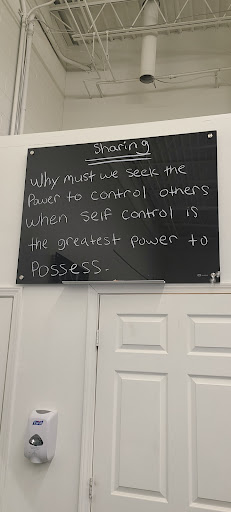 Sharing
Why must we seek the
Power to control others
when self control is
the greatest power to
Possess.